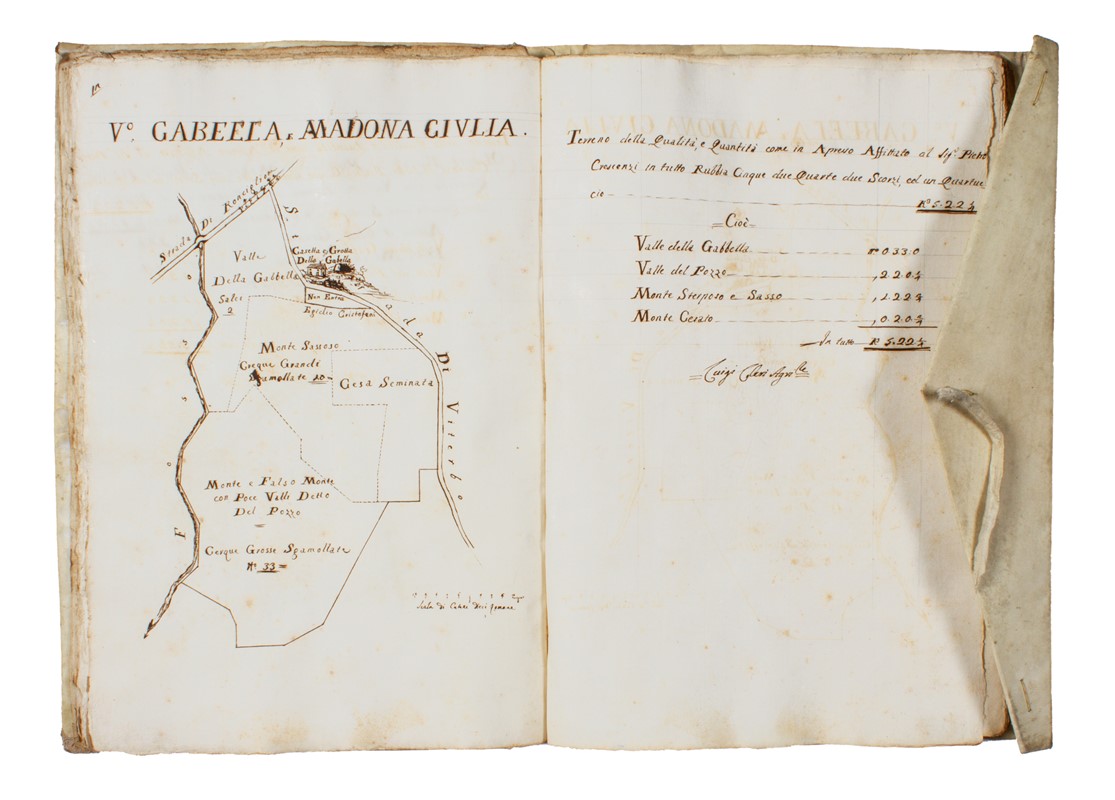 V.º GABELLA, E MADONA GIULIA.
Strada Di Ronciglione
Strada Di Viterbo
Casetta e Grotta
Della Gabella
Valle
Della Gabbella
Salci
2
Non Entra
Egidio Cristofani
Monte Sassoso
Cerque Grandi
Sgamollate 20
Cesa Seminata
Fosso
Monte e Falso Monte
con Poce Valle Detto
Del Pozzo
Cerque Grosse Sgamollate
Nº 33 =
Scala Di Catene Dieci Romane
Terreno della Qualità, e Quantità come in Apresso Affittato al Sigr.
Crescenzi in tutto Rubbia Cinque due Quarte due Scorzi, ed un Quartuc
cio
Rª 5.2.2.¼
=Cioè=
Valle della Gabbella
Valle del Pozzo
Monte Sterposo e Sasso
Monte Cesato
In tutto Rª 5.2.2.¼
Luigi